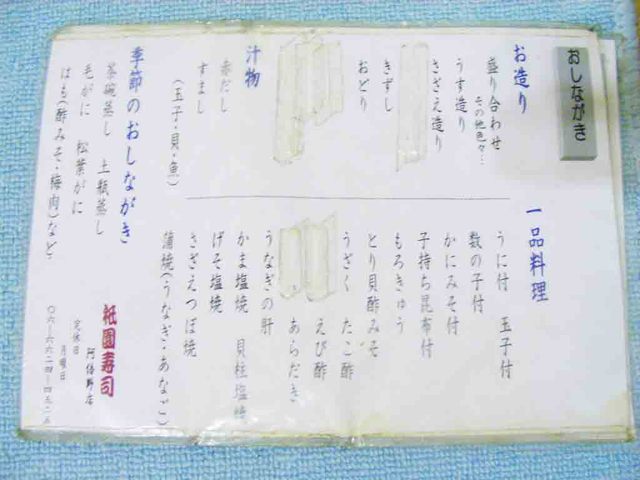 おしながき
お造り
盛り合わせ
その他色々…
うす造り
さざえ造り
きずし
おどり
汁物
赤だし
すまし
(玉子・貝・魚)
季節のおしながき
茶碗蒸し 土瓶蒸し
毛がに 松葉がに
はも(酢みそ・梅肉)など
一品料理
うに付 玉子付
数の子付
かにみそ付
子持ち昆布付
もろきゅう
とり貝酢みそ
うざく たこ酢
えび酢
あらだき
うなぎの肝
かま塩焼 貝柱塩焼
げそ塩焼
さざえつぼ焼
蒲焼(うなぎ・あなご)
祇園寿司
阿倍野店
定休日
月曜日
〇六-六六二四-四九二五